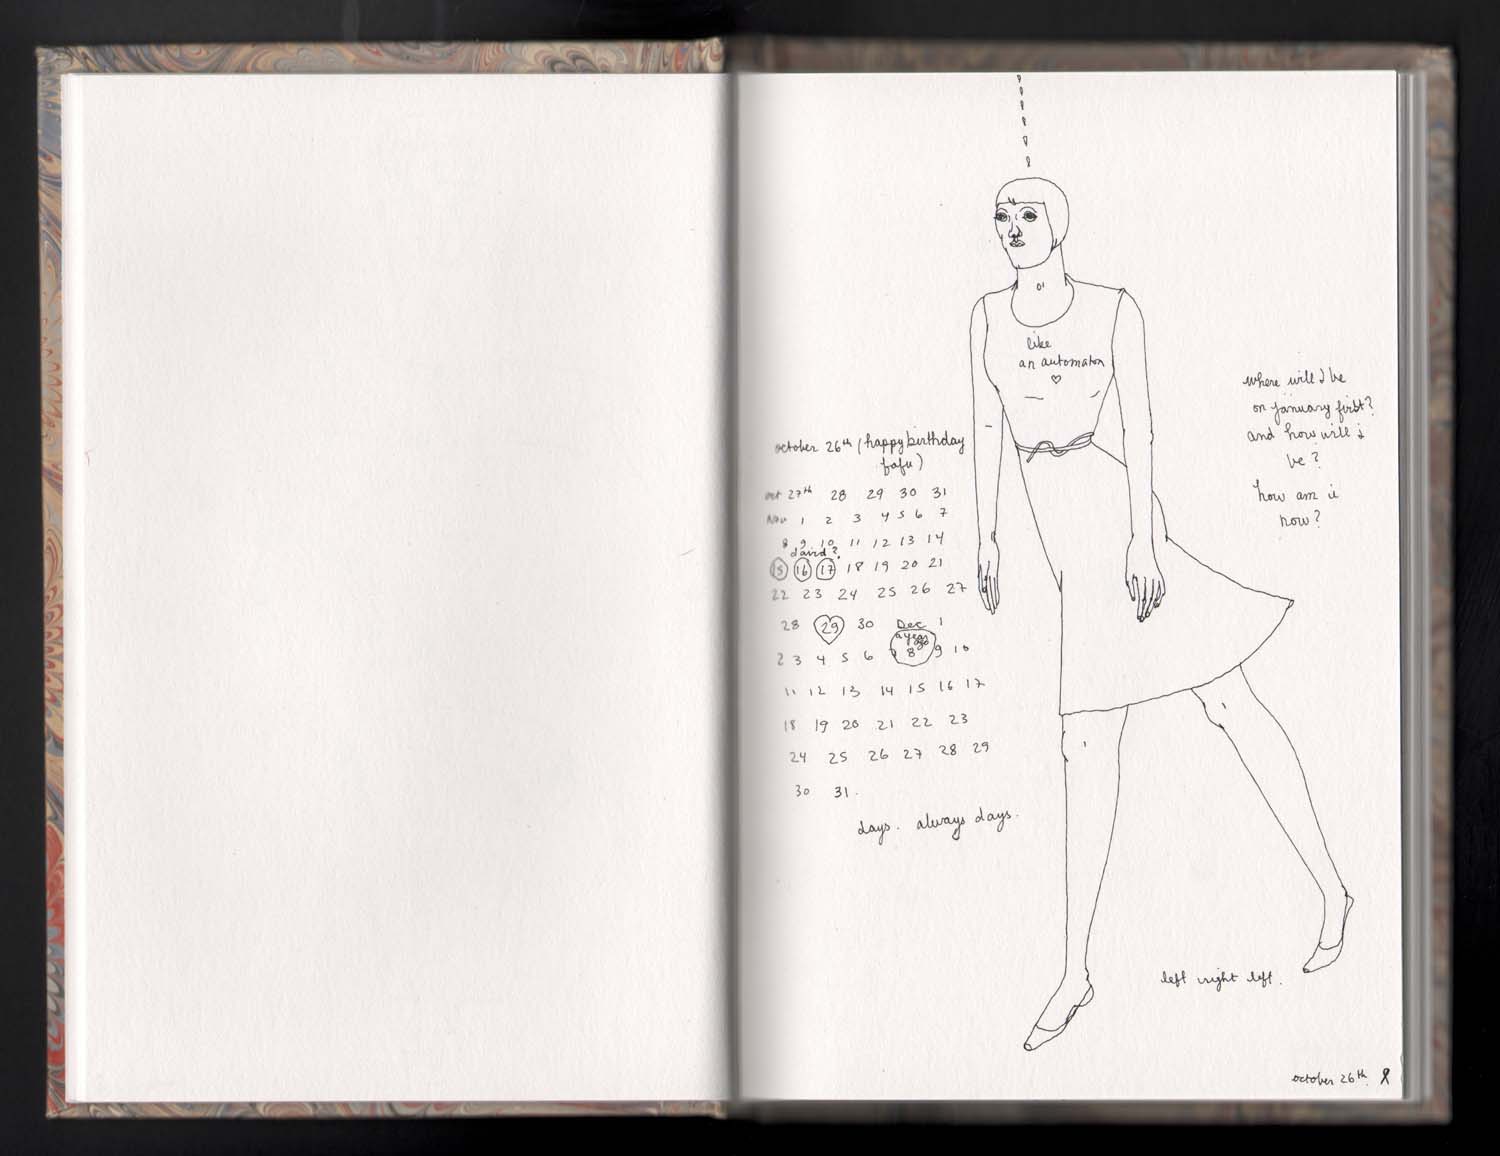 like
an automaton
♡
october 26th (happy birthday
fafu)
oct 27th 28 29 30 31
Nov 1 2 3 4 5 6 7
8 9 10 11 12 13 14
david?
15 16 17 18 19 20 21
22 23 24 25 26 27
28 29 30 Dec 1
a year
2 3 4 5 6 8 9 10
11 12 13 14 15 16 17
18 19 20 21 22 23
24 25 26 27 28 29
30 31.
days. always days.
where will I be
on january first?
and how will i
be?
how am i
now?
left right left.
october 26th